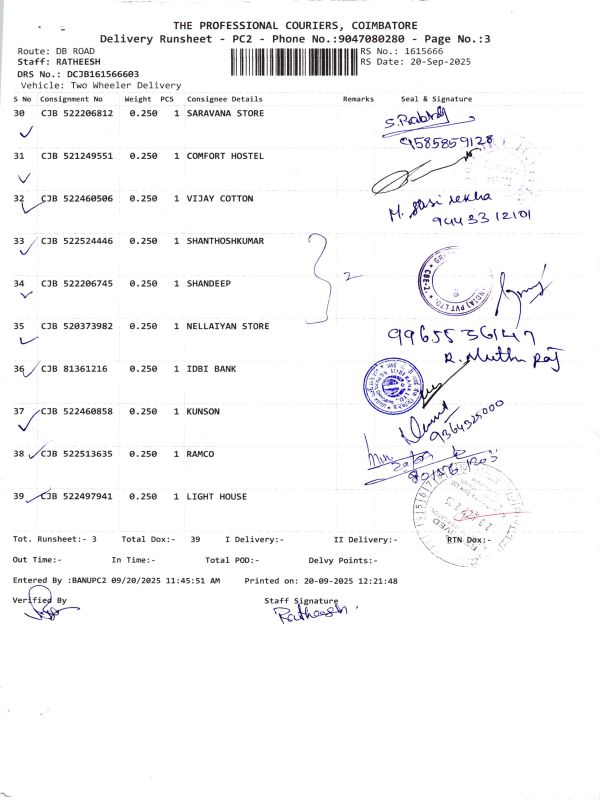 THE PROFESSIONAL COURIERS, COIMBATORE
Delivery Runsheet - PC2 - Phone No.:9047080280 - Page No.:3
Route: DB ROAD RS No.: 1615666
Staff: RATHEESH RS Date: 20-Sep-2025
DRS No.: DCJB161566603
Vehicle: Two Wheeler Delivery
S No Consignment No Weight PCS Consignee Details Remarks Seal & Signature
30 CJB 522206812 0.250 1 SARAVANA STORE
9585859128
31 CJB 521249551 0.250 1 COMFORT HOSTEL
32 CJB 522460506 0.250 1 VIJAY COTTON M. Sasi rekha
9443312101
33 CJB 522524446 0.250 1 SHANTHOSHKUMAR
34 CJB 522206745 0.250 1 SHANDEEP 2
35 CJB 520373982 0.250 1 NELLAIYAN STORE 9965536147
R. Muthu Raj
36 CJB 81361216 0.250 1 IDBI BANK
37 CJB 522460858 0.250 1 KUNSON 9364325000
38 CJB 522513635 0.250 1 RAMCO
39 CJB 522497941 0.250 1 LIGHT HOUSE
Tot. Runsheet:- 3 Total Dox:- 39 I Delivery:- II Delivery:- RTN Dox:-
Out Time:- In Time:- Total POD:- Delvy Points:-
Entered By :BANUPC2 09/20/2025 11:45:51 AM Printed on: 20-09-2025 12:21:48
Verified By Staff Signature
Ratheesh